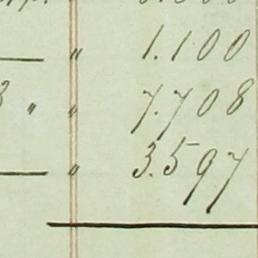 — " 1.100
3 " " 7.708
— " 3.597